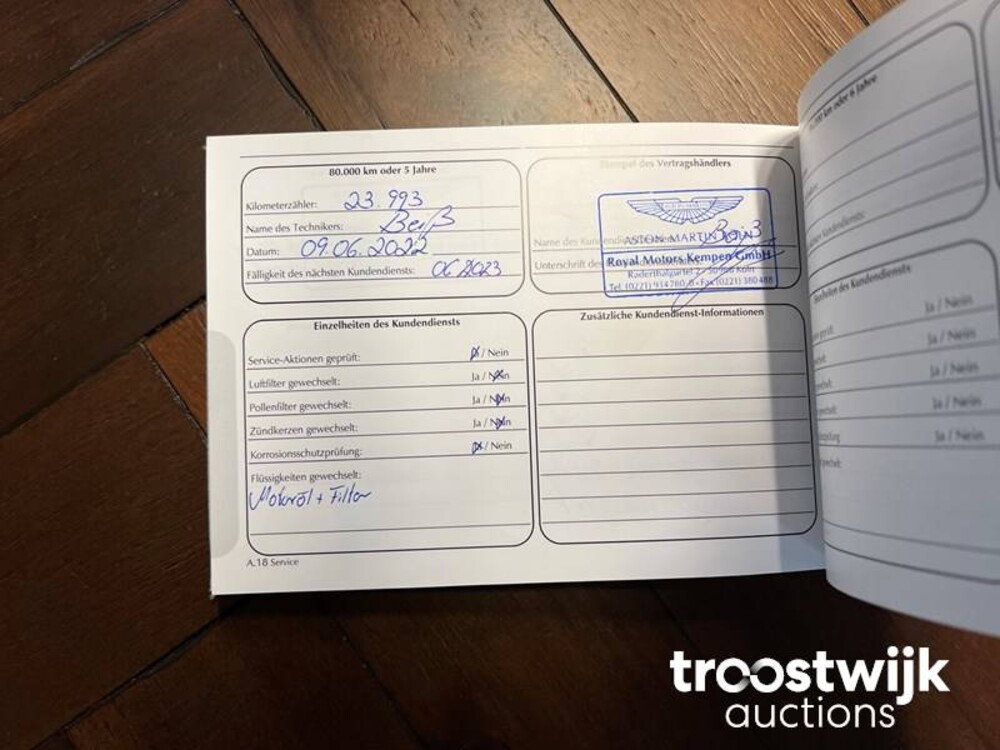 80.000 km oder 5 Jahre
Kilometerzähler: 23.993
Name des Technikers: Beiß
Datum: 09.06.2022
Fälligkeit des nächsten Kundendiensts: 06/2023
Stempel des Vertragshändlers
ASTON MARTIN KÖLN
Royal Motors Kempen GmbH
Raderthalgürtel 2 · 50968 Köln
Name des
Unterschrift des
Einzelheiten des Kundendiensts
Service-Aktionen geprüft: Ja / Nein
Luftfilter gewechselt: Ja / Nein
Pollenfilter gewechselt: Ja / Nein
Zündkerzen gewechselt: Ja / Nein
Korrosionsschutzprüfung: Ja / Nein
Flüssigkeiten gewechselt:
Motoröl + Filter
Zusätzliche Kundendienst-Informationen
A.18 Service
oder 6 Jahre
des Kundendiensts
Ja / Nein
Ja / Nein
Ja / Nein
Ja / Nein
Ja / Nein
troostwijk
auctions